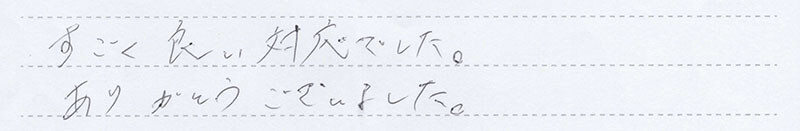 すごく良い対応でした。
ありがとうございました。